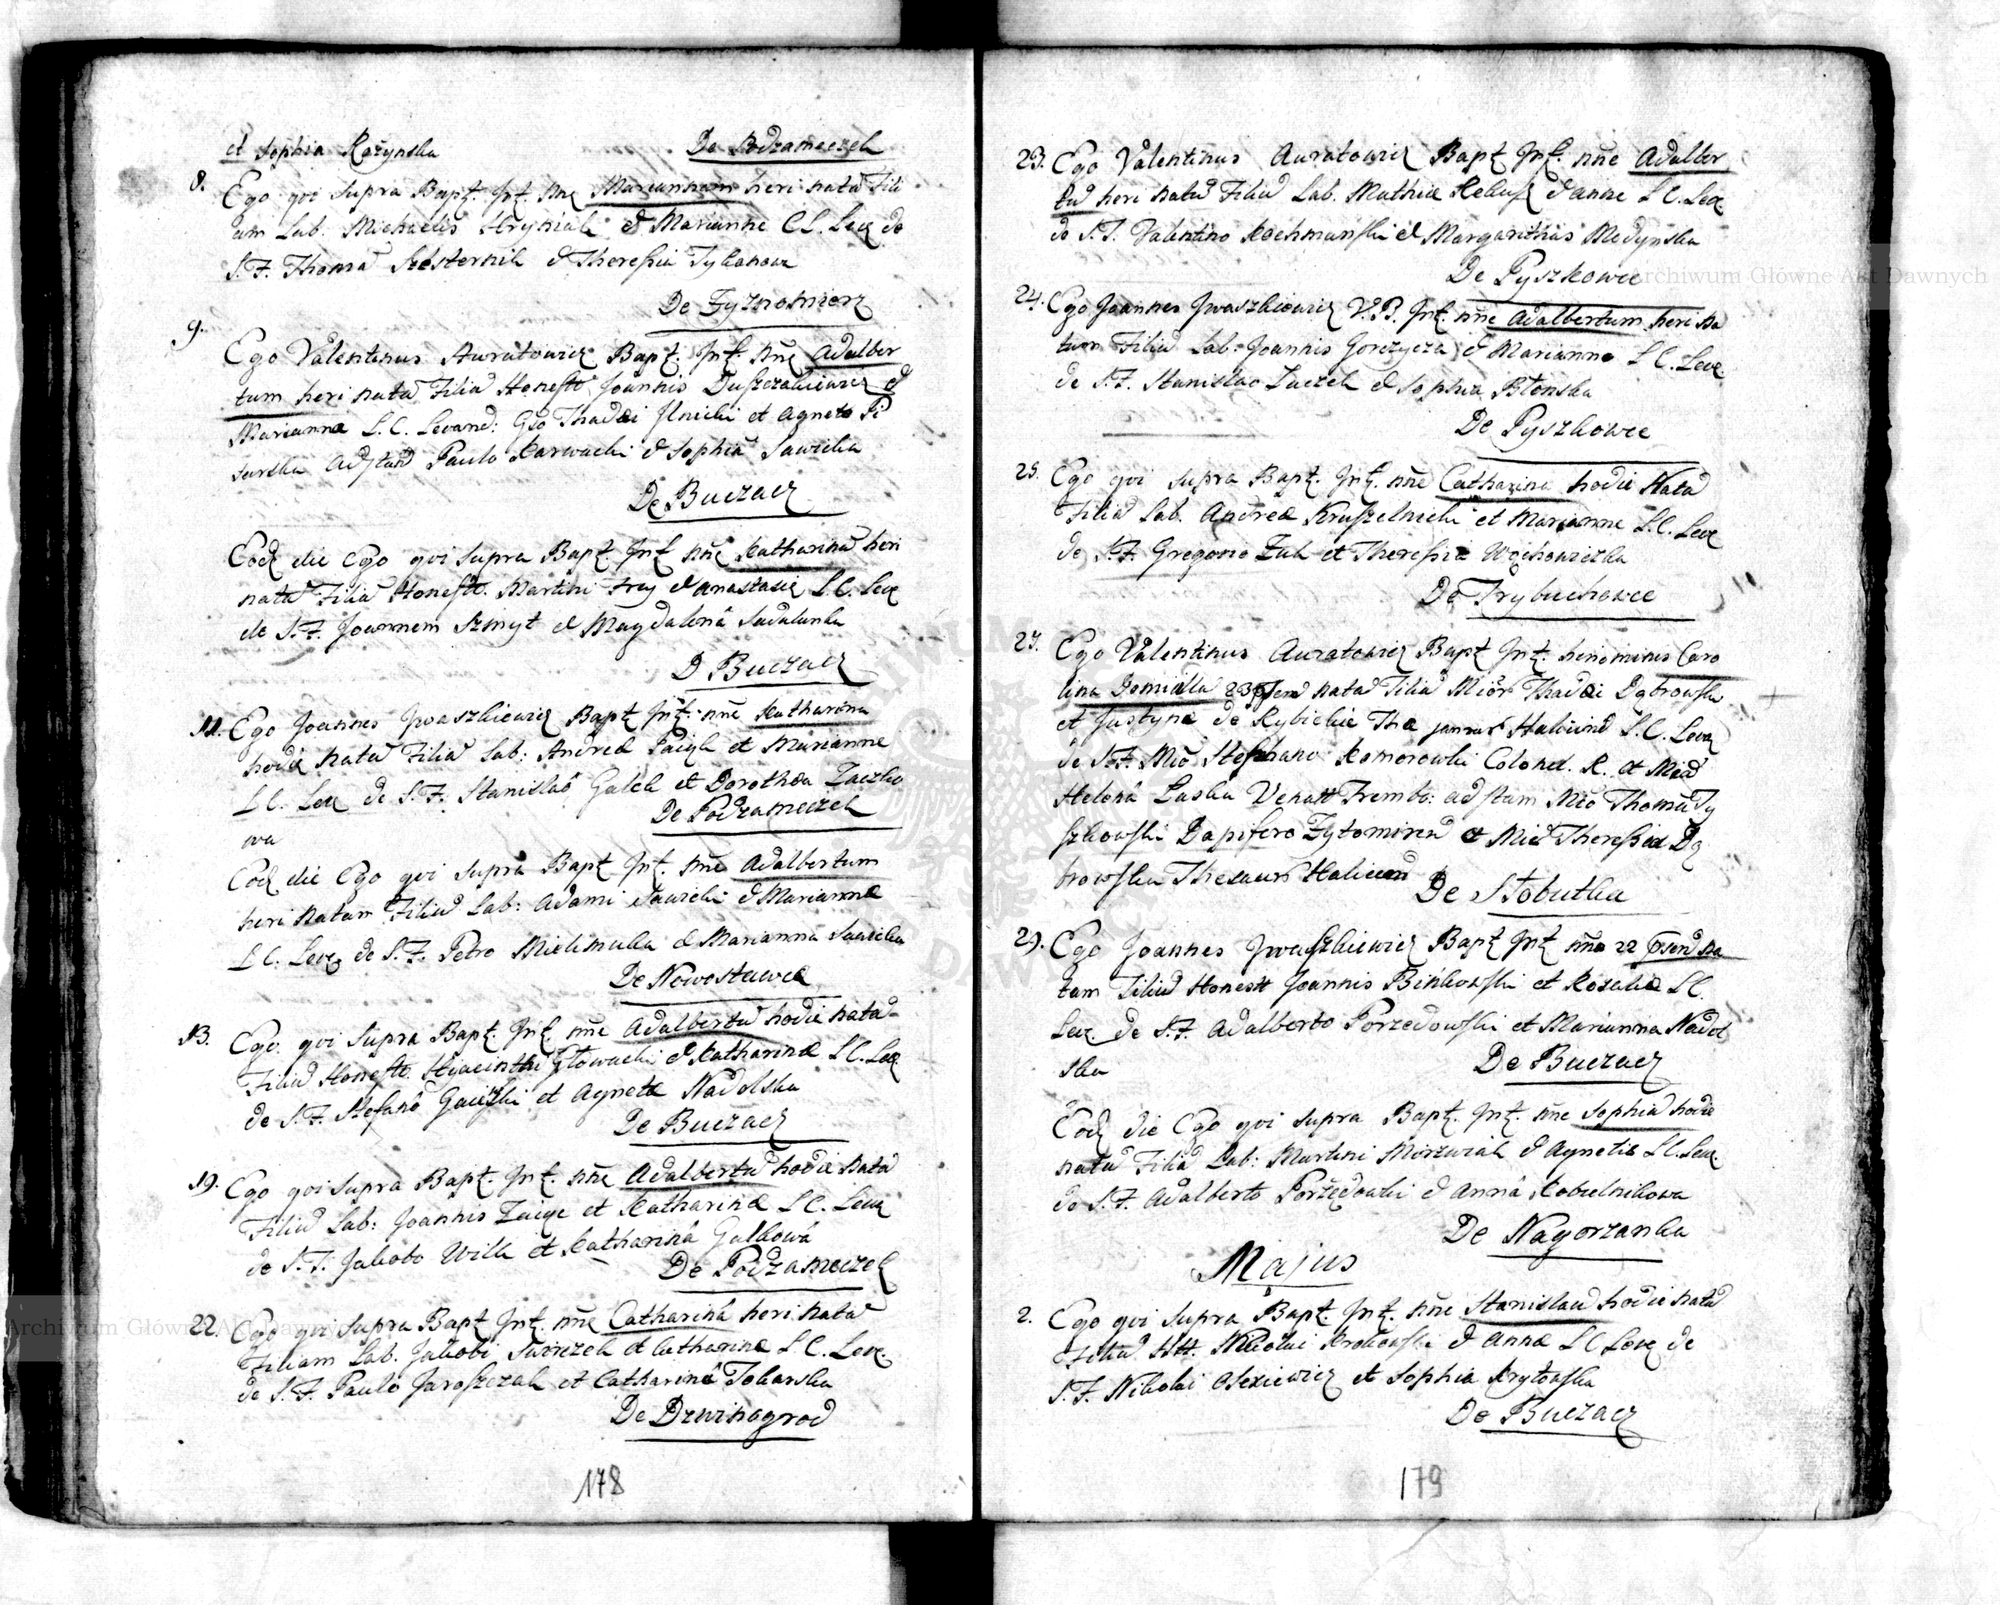 et Sophia Rożynska
De Podzameczek
8. Ego qvi supra Bapt. Inf. nne Mariannam heri nata Fili
am Lab. Michaelis Hryniak et Marianne CL. Lev de
S. F. Thoma Szesternik et Theressia Tykanowa
De Zyznomierz
9. Ego Valentinus Auratowicz Bapt. Inf. nne Adalber
tum heri natu Filiu Honestt Joannis Duszczakiewicz et
Marianna L. C. Levand: Gso Thadæi Ilnicki et Agneta Pi
sarska adstan Paulo Karwacki et Sophia Sawicka
De Buczacz
Eod die Ego qvi supra Bapt. Inf nne Katharina heri
nata Filia Honestt. Martini Frey et Anastasiæ L. C. Lev
de S. F. Joannem Szmyt et Magdalena Sadalunka
D Buczacz
11. Ego Joannes Jwaszkiewicz Bapt Inf. nne Katharina
hodie nata Filia Lab: Andreæ Paigk et Marianne
L C. Lev de S. F. Stanislao Galek et Dorothea Zaczko
wa
De Podzameczek
Eod die Ego qvi supra Bapt Inf. nne Adalbertum
heri natam Filiu Lab: Adami Sawicki et Marianne
L C. Lev de S. F. Petro Mielimulka et Marianna Sawicka
De Nowostawce
13. Ego qvi supra Bapt. Inf. nne Adalbertu hodie nata
Filiu Honestt. Hyacinthi Głowacki et Katharinæ L C. Lev
de S. F. Stefano Gaiezki et Agneta Nadolska
De Buczacz
19. Ego qvi supra Bapt. Inf. nne Adalbertu hodie nata
Filiu Lab: Joannis Zaige et Katharinæ L C. Leva
de S. F. Jakobo Wilk et Katharina Galkowa
De Podzameczek
22 Ego qvi supra Bapt Inf. nne Catharina heri nata
Filiam Lab. Jakobi et Catharinæ L C. Lev.
de S. F. Paulo Jaroszczak et Catharina Tokarska
De Dzwinogrod
178
23. Ego Valentinus Auratowicz Bapt Inf. nne Adalber
tu heri natu Filiu Lab. Mathiæ Rebusz et Annæ L C. Lev
de S. F. Valentino Kochmanski et Margarithas Medynska
De Pyszkowce
24. Ego Joannes Jwaszkiewicz V. P. Inf. nne Adalbertum heri na
tum Filiu Lab: Joannis Gorczyca et Marianne L C. Lev.
de S. F. Stanislao Zaczek et Sophia Błonska
De Pyszkowce
25. Ego qvi supra Bapt. Inf. nne Catharina hodie Nata
Filia Lab. Andreæ Kruszelnicki et Marianne L. C. Lev
de S. F. Gregorio Zuk et Theressia Woichowiczka
De Trybuchowce
27. Ego Valentinus Auratowicz Bapt Inf. binominis Caro
lina Domicilla nata Filia Thadæi Dąbrowski
et Justynæ de Rybickie L. C. Leva
de S. F. Mco Stephano Komorowski Colonel. R. et Mca
Helena Laska Venatt Trembo: adstam Mco Thoma Ty
szkowski Dapifero Zytomiren et Mca Theressia Dą
browska Thesaur Halicien
De Słobutka
29. Ego Joannes Jwaszkiewicz Bapt Inf nne 22 na
tam Filiu Honestt Joannis Binkowski et Rozaliæ L C.
Lev. de S. F. Adalberto Porzedowski et Marianna Nadol
ska
De Buczacz
Eod die Ego qvi supra Bapt. Inf. nne Sophia hodie
nata Filia Lab: Martini Morzwiak et Agnetis L C. Lev.
de S. F. Adalberto Porzędowski et Anna Kobzelnikowa
De Nagorzanka
Majus
2. Ego qvi supra Bapt. Inf. nne Stanislau hodie nata
Filiu Nicolai Krokowski et Annæ L C Lev de
S. F. Nikolai Olexiewicz et Sophia Krytowska
De Buczacz
179
Archiwum Główne Akt Dawnych
Archiwum Główne Akt Dawnych